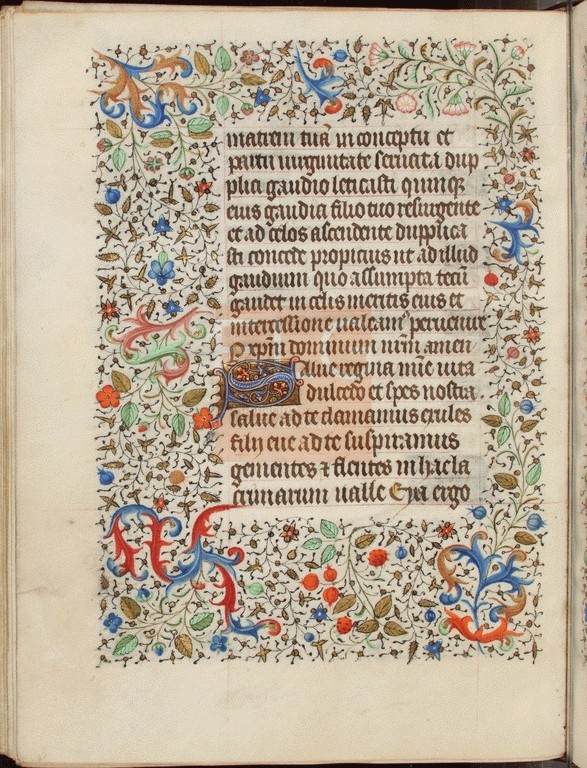 matrem tuā in conceptu et
partu uirginitate seruata dup
plici gaudio letificasti quinqȝ
eius gaudia filio tuo resurgente
et ad celos ascendente dupplica
sti concede propicius ut ad illud
gaudium quo assumpta tecū
gaudet in celis meritis eius et
intercessione ualeam⁹ peruenire
Per xp̄m dominum nr̄m amen
Salue regina mīe uita
dulcedo et spes nostra.
salue ad te clamamus exules
filii eue ad te suspiramus
gementes ⁊ flentes in hac la
crimarum ualle Eya ergo